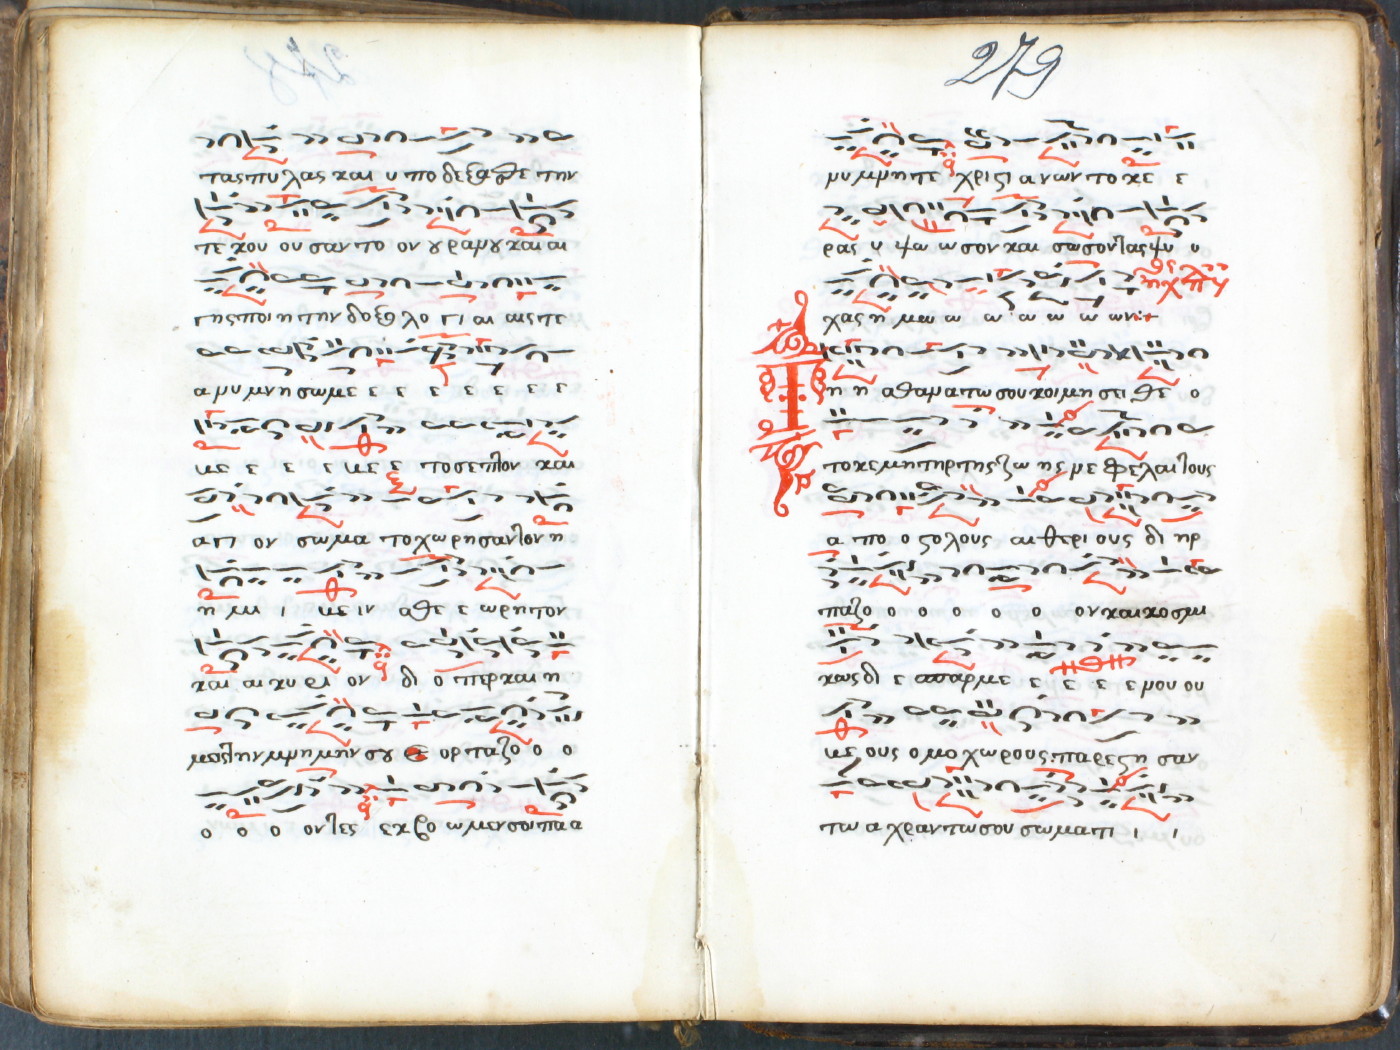 279
τας πυ λας και υ πο δεξασθε την
τε κου ου σαν το ον ουρανου και αι
γης ποι η την δοξο λο γι αι αις τε
α νυ μνη σωμε ε ε ε ε ε ε ε
με ε ε ε ε με ε το σεπτον και
α γι ον σω μα το χω ρη σαν τον η
η μι ι με ιν α θε ε ω ρη τον
και αι κυ ρι ον δι ο περ και η
μεις την μνημην σου ε ορ ταζο ο ο
ο ο ο ον τες εκ βο ω μεν σοι πα α
νυ μνη τε χρι στι α νων το κε ε
ρας υ ψω ω σον και σω σον τας ψυ υ
χας η μω ω ω ω ω ω ων
Τη η α θα να τω σου κοι μη σει θε ο
το κε μητηρ της ζω ης νε φε λαι τους
α πο ο στο λους αι θερι ους δι ηρ
παζο ο ο ο ο ο ον και κο σμι
κως δι ε σπαρ με ε ε ε ε νου ου
με ους ο μο χω ρους παρεστη σαν
τω α χραν τω σου σωματι ι ι